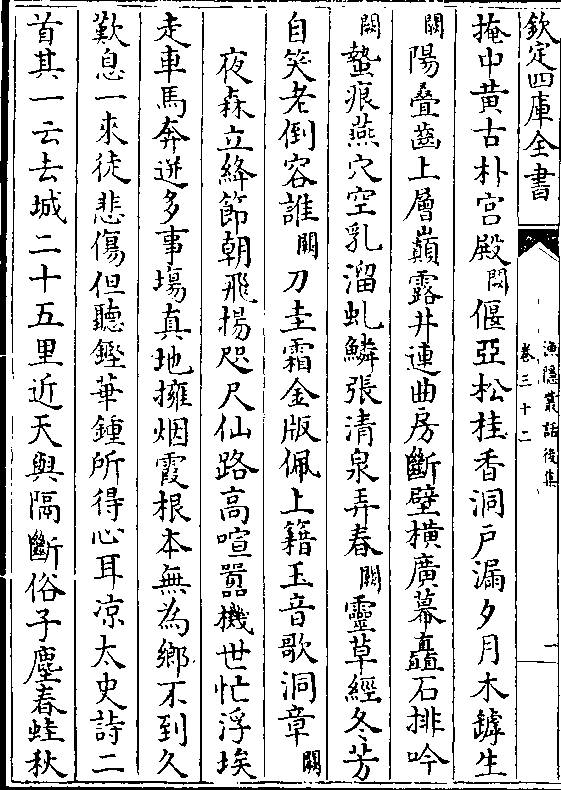 欽定四庫全書
漁隱叢話後集
卷三十二
一
掩中黄古朴宫殿闕偃亞松桂香洞戸漏夕月木罅生
闕陽疊齒上層巔露井連曲房斷壁横廣幕矗石排吟
闕蟄痕燕穴空乳溜虬鱗張清泉弄春闕靈草經冬芳
自笑老倒容誰闕刀圭霜金版佩上籍玉音歌洞章闕
夜森立絳節朝飛揚咫尺仙路高喧囂機世忙浮埃
走車馬奔迸多事塲真地擁烟霞根本無為鄉不到久
歎息一來徒悲傷但聽鏗華鍾所得心耳凉太史詩二
首其一云去城二十五里近天與隔斷俗子塵春蛙秋